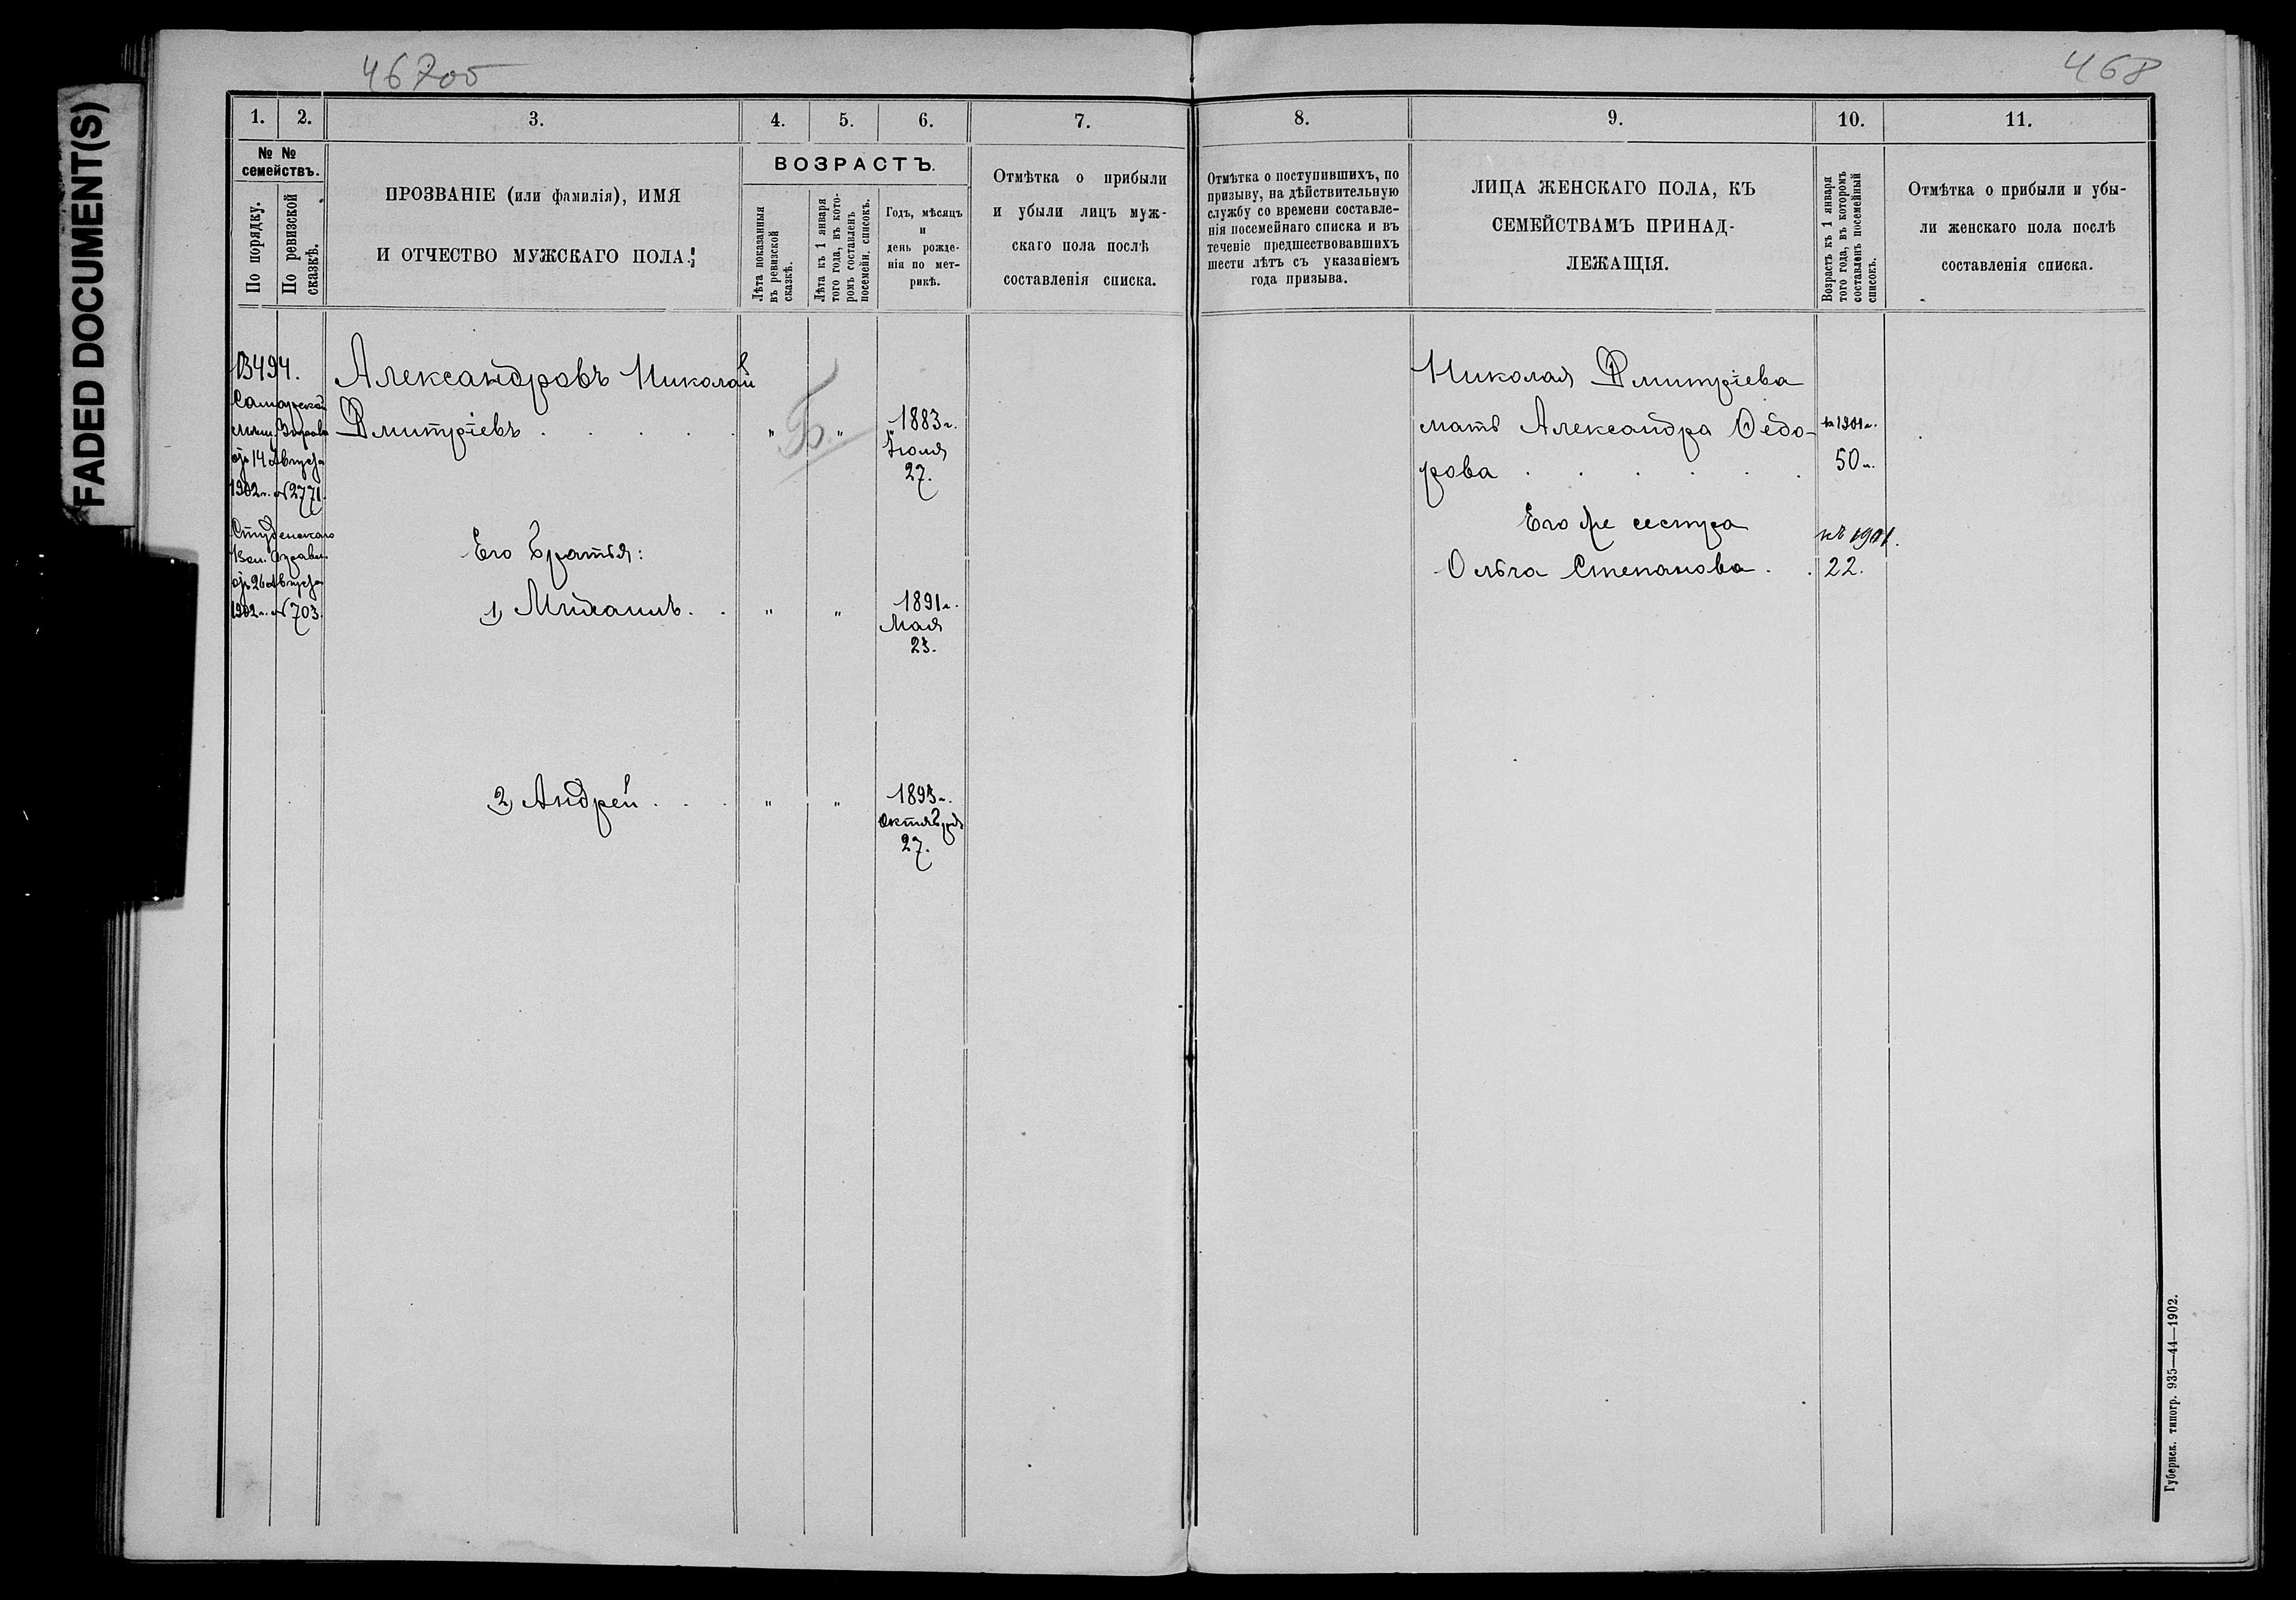 FADED DOCUMENT(S)
467об
468
1. 2. 3. 4. 5. 6. 7.
№ №
семействъ.
По порядку.
По ревизской
сказкѣ.
ПРОЗВАНІЕ (или фамилія), ИМЯ
И ОТЧЕСТВО МУЖСКАГО ПОЛА.
ВОЗРАСТЪ.
Лѣта показанныя
въ ревизской
сказкѣ.
Лѣта къ 1 января
того года, въ кото-
ромъ составленъ
посемейн. списокъ.
Годъ, мѣсяцъ
и
день рожде-
нія по мет-
рикѣ.
Отмѣтка о прибыли
и убыли лицъ муж-
скаго пола послѣ
составленія списка.
13494.
Самарской
14 Августа
1902 г. № 2771.
26 Августа
1902 г. № 703.
Александровъ Николай
Дмитріевъ . . . . . " Б. "
1883 г.
Іюля
27.
Его братья:
1) Михаилъ . . " "
1891 г.
Мая
23.
2) Андрей . . . " "
1893 г.
Октября
27.
8. 9. 10. 11.
Отмѣтка о поступившихъ, по
призыву, на дѣйствительную
службу со времени составле-
нія посемейнаго списка и въ
теченіе предшествовавшихъ
шести лѣтъ съ указаніемъ
года призыва.
ЛИЦА ЖЕНСКАГО ПОЛА, КЪ
СЕМЕЙСТВАМЪ ПРИНАД-
ЛЕЖАЩІЯ.
Возрастъ къ 1 января
того года, въ которомъ
составленъ посемейный
списокъ.
Отмѣтка о прибыли и убы-
ли женскаго пола послѣ
составленія списка.
Николая Дмитріева
мать Александра Ѳедо-
рова . . . . . .
къ 1901 г.
50 л.
Его же сестра
Ольга Степанова . .
къ 1901.
22.
Губернск. типогр. 935—44—1902.